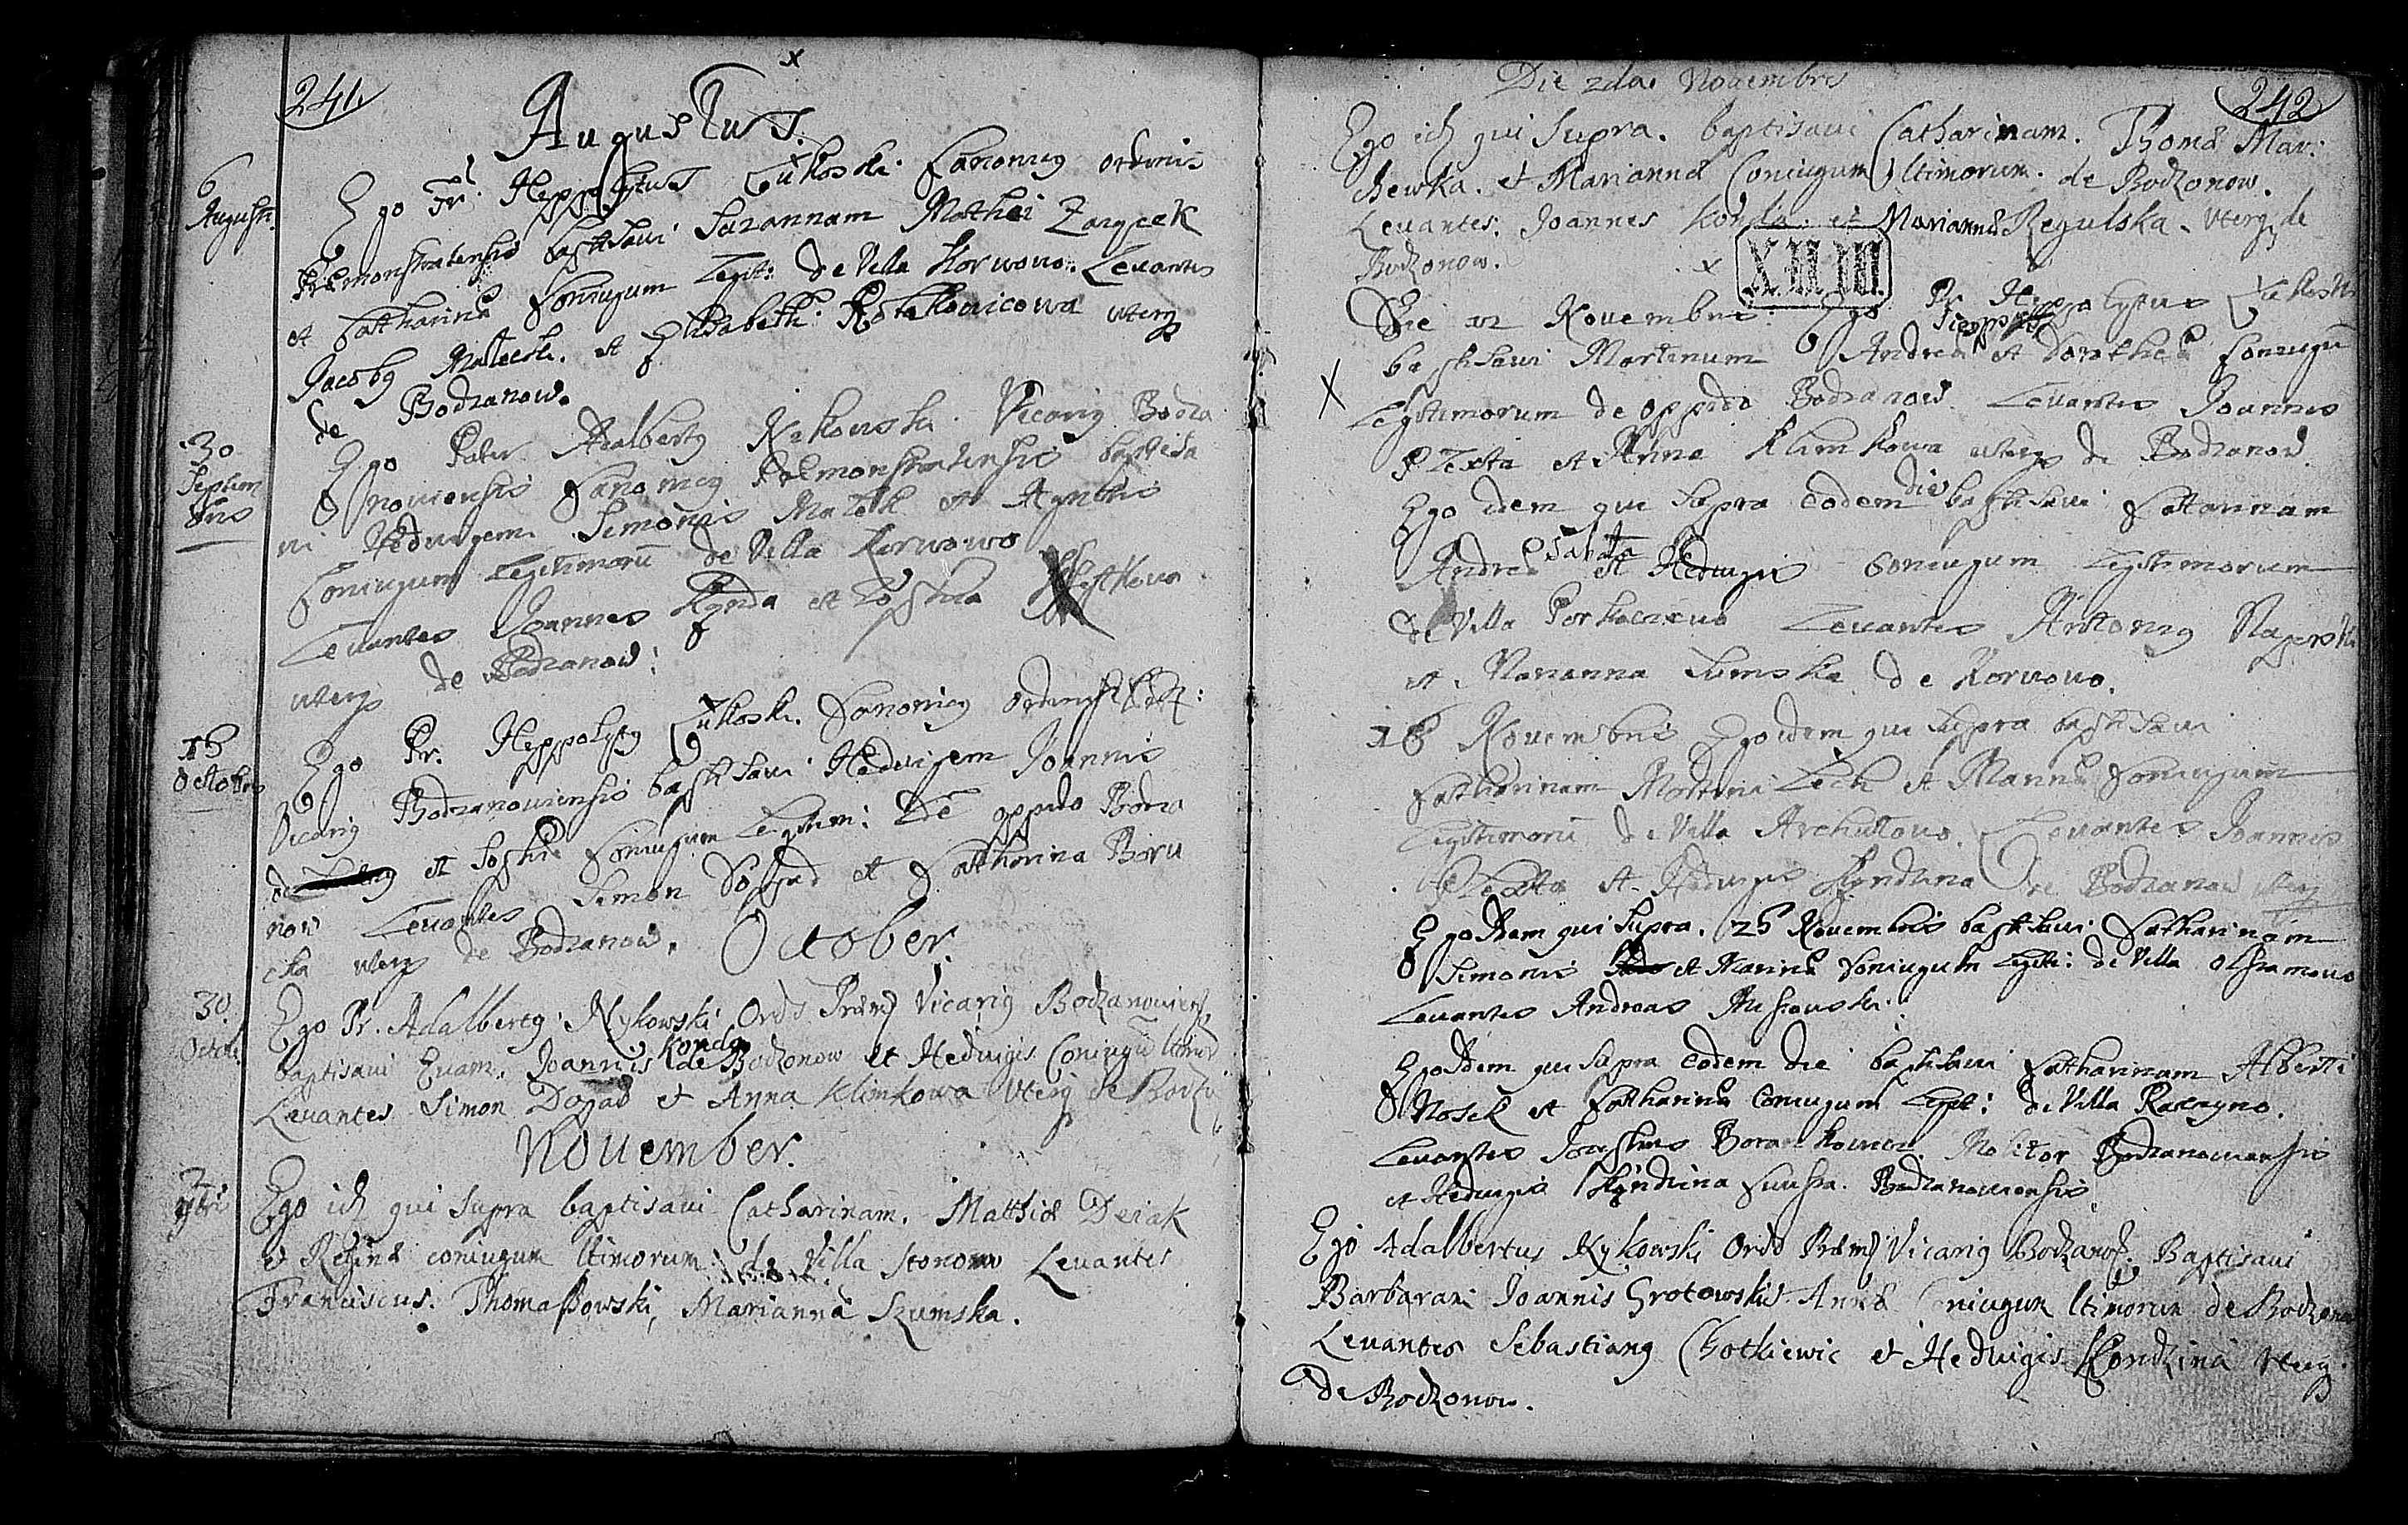 241.
Augustus.
6
Augusti.
Ego Fr. Heppolytus Łukoski Canonicq ordinis
Præmonstratensis baptisavi Suzannam Mathei Zaręcek
et Catharinæ Coniugum Legit: de Villa Korwowo. Levantes
Jacobq Malecki. et Elisabeth: Rostkowicowa uterq
de Bodzanow.
30
Septem
bris
Ego Pater Adalbertq Rykowski Vicariq Bodza
noviensis Canonicq Præmonstratensis baptisa
vi Hedvigem Simonis Mazek et Agnetis
Coniugum Legitimorū de Villa Korwowo
Levantes Joannes Kęnda et Zophia
uterq de Bodzanow:
15
Octobris
Ego Pr. Heppolytq Łukoski. Canonicq
Vicariq Bodzanoviensis baptisavi Hedvigem Joannis
et Sophiæ Coniugum Legitim: De oppido Bodza
now Levantes Simon et Catharina Boru
cka uterq de Bodzanow.
October.
30
Octob:
Ego Pr. Adalbertq Rykowski Ord Præm Vicariq Bodzanoviens,
baptisavi Evam. Joannis Konda de Bodzonow et Hedvigis Coniugū
Levantes Simon Dogad et Anna Klimkowa Uterq de Bodzo
November.
2
9bri
Ego id qui supra baptisavi Catharinam. Matthiæ Deiak
et Reginæ coniugum ltimorum de Villa Stonow Levantes
Franciscus. Thomaszowski, Marianna Szumska.
Die 2da Novembris
242
Ego id qui supra. baptisavi Catharinam. Thomæ Mar:
chewka. et Mariannæ Coniugum ltimorum. de Bodzonow.
Levantes. Joannes Konda. et Marianna Regulska. Uterq de
Bodzonow.
X.II.III.
Die 12 Novembris. Ego Pr. Heppolytus Łukoski
baptisavi Martinum Andreæ et Dorotheæ Coniugū
Legitimorum de oppido Bodzanow Levantes Joannes
Plexta et Anna Klimkowa uterq de Bodzanow.
Ego idem qui supra eodem die baptisavi Cattarinam
Andreæ et Hedvigis Coniugum Legitimorum
de Villa Levantes Antoniq
et Marianna Sumska de Korwowo.
18 Novembris Ego idem qui supra baptisavi
Catharinam Martini Lech et Mariannæ Coniugum
Legitimorū de Villa Archutowo. Levantes Joannes
Plexta et Hedvigis Kęndzina de Bodzanow uterq
Ego Idem qui supra. 25 Novembris baptisavi Catharinam
Simonis et Marinæ Coniugum Legiti: de Villa
Levantes Andreas
Ego Idem qui supra eodem die baptisavi Catharinam Alberti
Nosek et Catharinæ Coniugum Legit: de Villa Raczyno.
Levantes Josephus Molitor Bodzanoviensis
et Hedvigis Kęndzina Bodzanoviensis
Ego Adalbertus Rykowski Ord Præm Vicariq Bodzanof. Baptisavi
Barbaram Joannis Grotowski Annæ Coniugum ltimorum de Bodzonow
Levantes Sebastianq Chotkiewic et Hedvigis Kondzina Uterq
de Bodzonow.